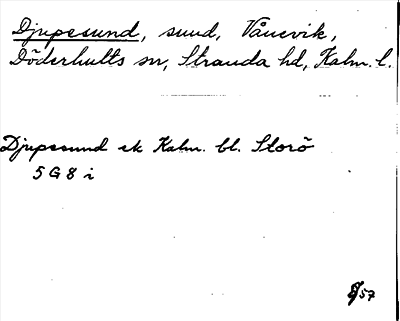 Djupesund, sund, Vånevik,
Döderhults sn, Stranda hd, Kalm. l.
Djupesund ek Kalm. bl. Storö
5 G 8 i
/57